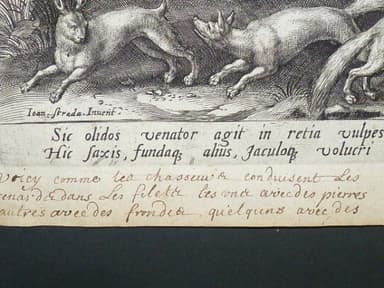 Ioan. Strada. Invent.
Sic olidos venator agit in retia vulpes
Hic saxis, fundaq, alius, Jaculoq, volucri
Voicy comme les chasseurs conduisent Les
renards dans Les filets les uns avec des pierres
autres avec des frondes, quelquns avec des